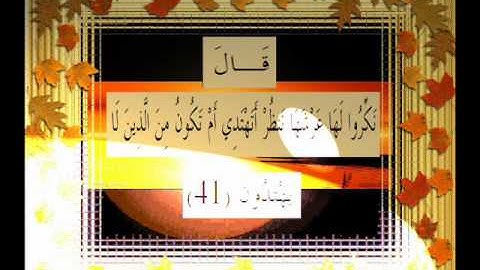 قَـــالَ
نَكِّرُوا لَهَا عَرْشَهَا نَنظُرْ أَتَهْتَدِي أَمْ تَكُونُ مِنَ الَّذِينَ لَا
يَهْتَدُونَ (41)